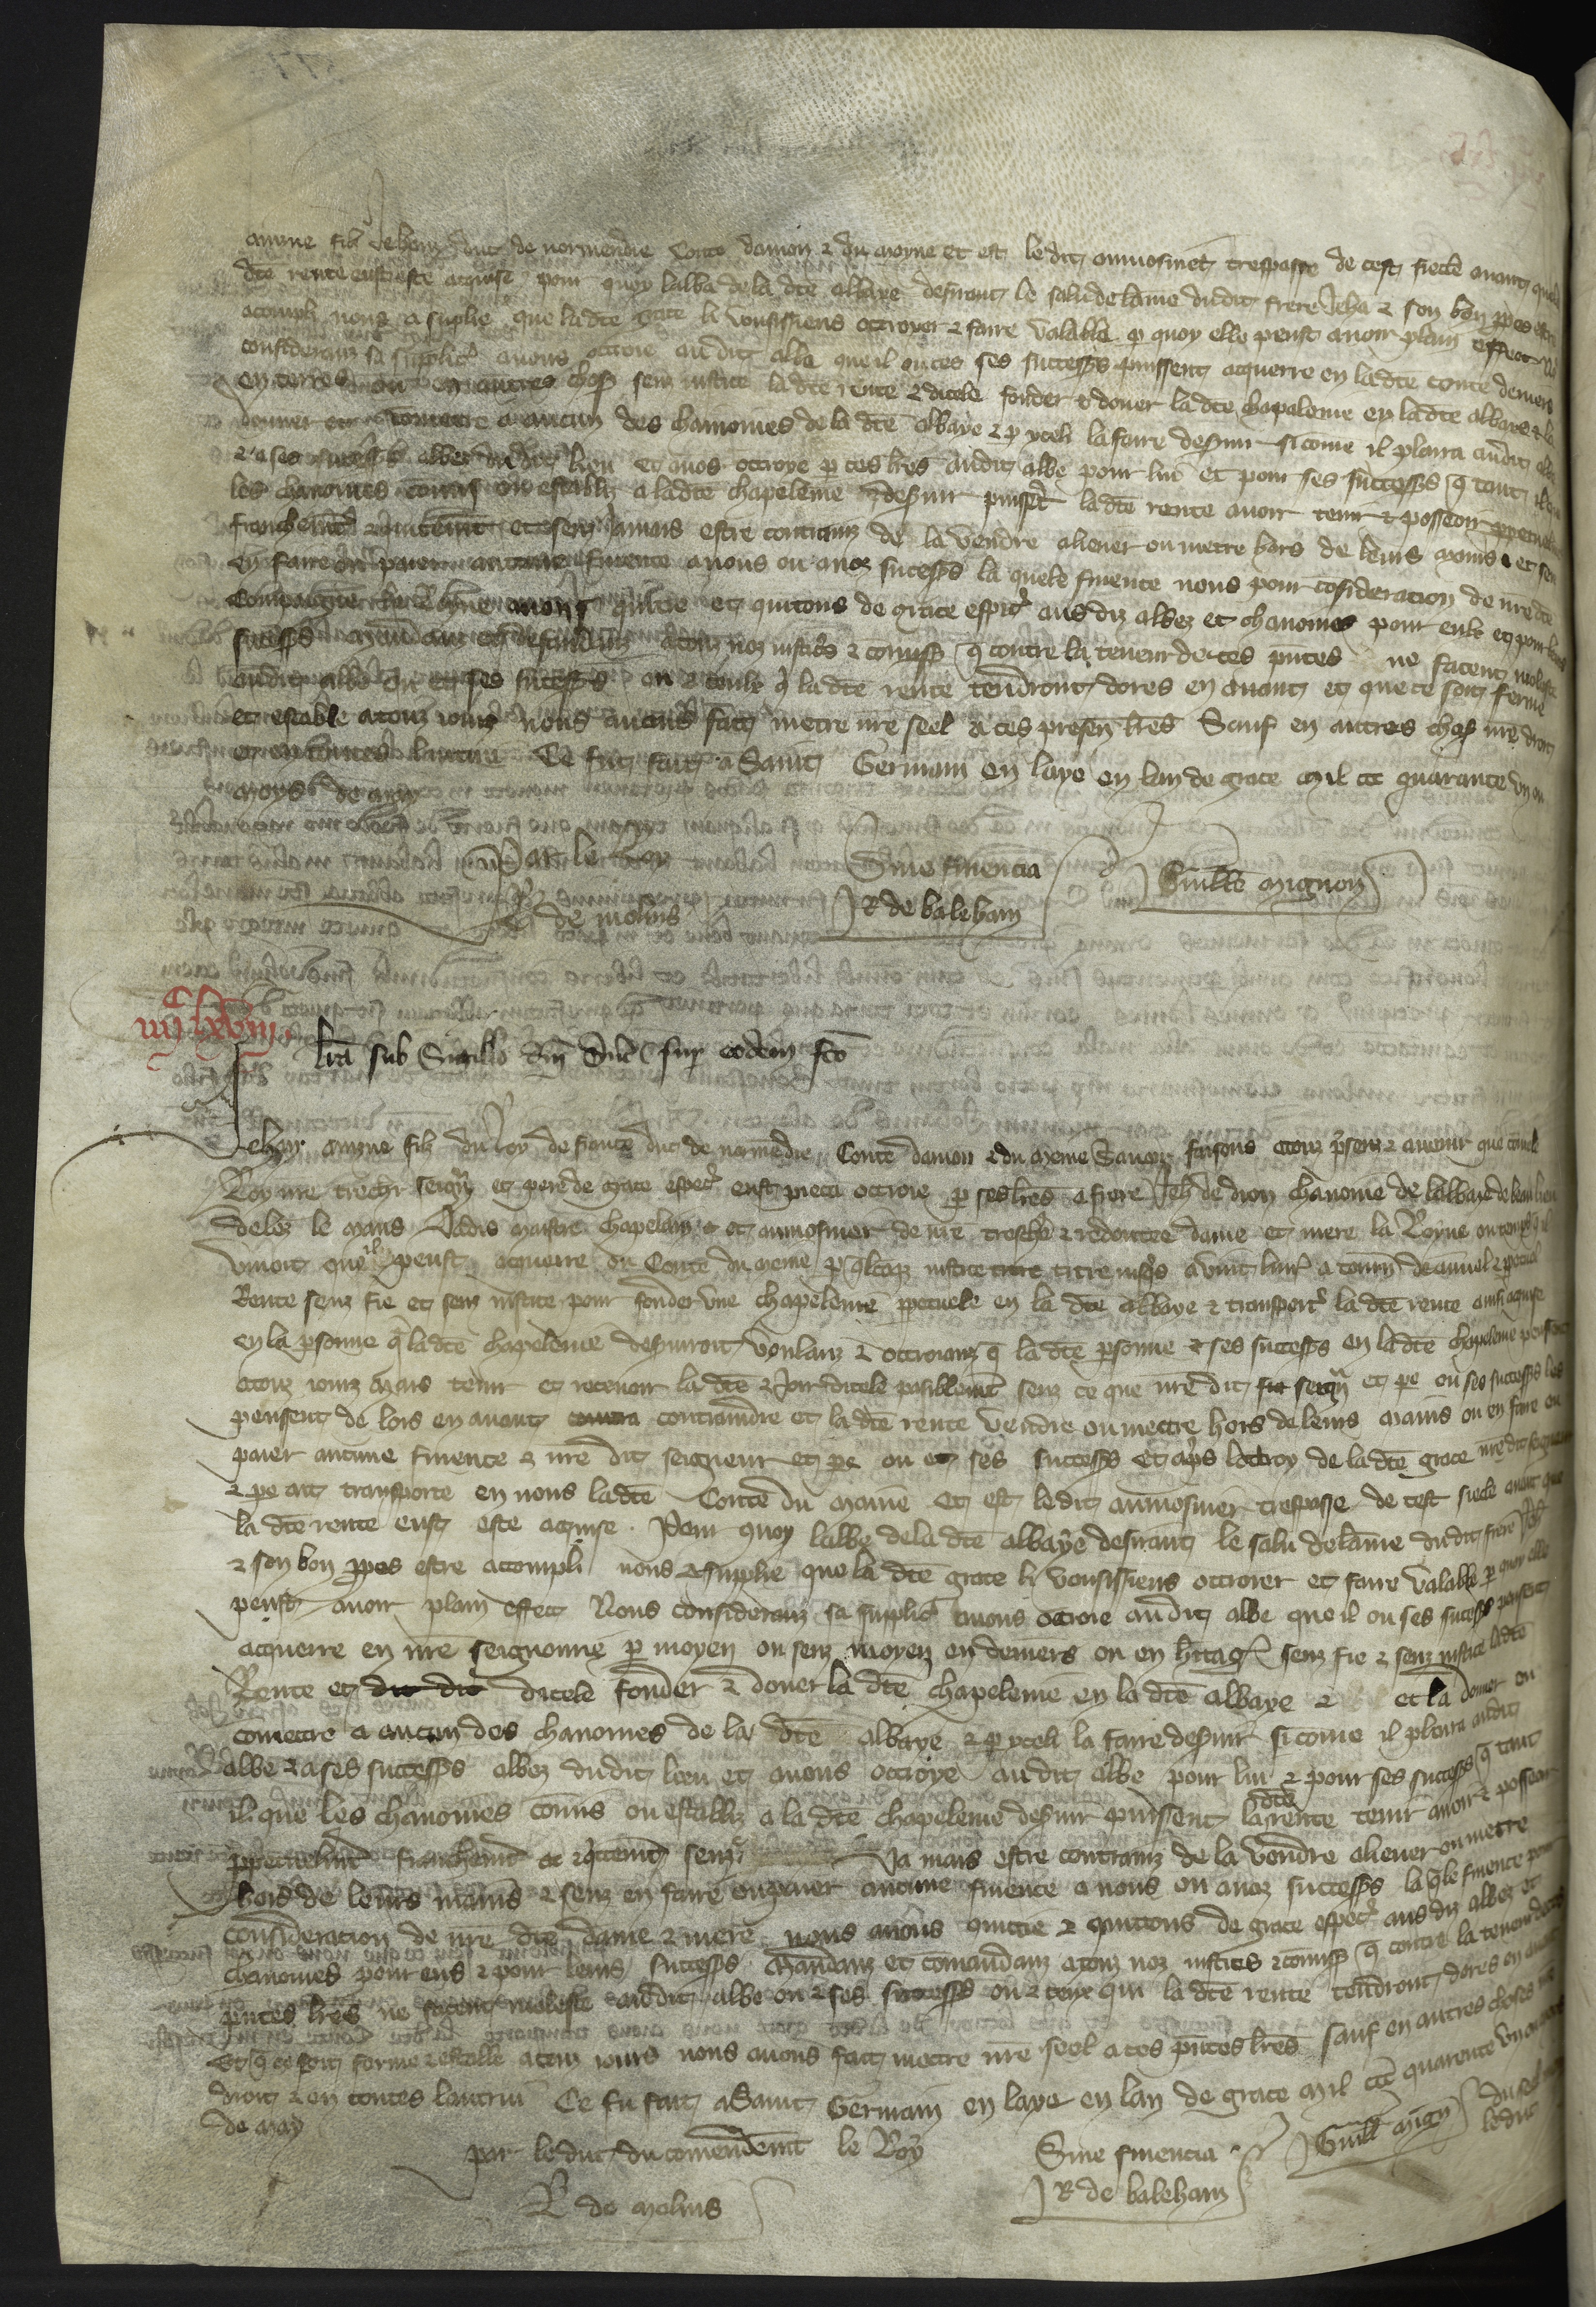 ainsne filz Jehan duc de normendie Conte danjou et du mayne et est le dit aumosnier trespasse de cest siecle avant que la
dte rente eust este acquise pour quoy labbe de la dte abbaye desirant le salu de lame dudit frere Jeha et son bon ppos estre
acompli nous a suplie que la dte grace li vousissiens ottroyer et faire valable p quoy elle peust avoir plain effect
considerant sa supplicacon avons ottroie audit abbe que il ou ses successs puissent acquerre en la dte conte deniers
en terres ou en autres choses senz justice la dte rente et dicele fonder et doner la dte chapelenie en la dte abbaye et la
donner ou cometre a aucun des chanoines de la dte abbaye et p yceli la faire desvir si come il plaira audit abbe
et a ses successs abbez du dit lieu et avons ottroye p ces lres audit abbe pour lui et pour ses successs q tant il
les chanoines comis ou establiz a la dte chapelenie desvir puissent la dte rente avoir tenir et posseoir
franchement et quitement et senz jamais estre contrainz de la vendre aliener ou metre hors de leurs mains et sen
en faire ou paier aucune finence a nous ou a noz sucesss la quele finence nous pour cosideracion de nre dte
compaigne la Royne avons quitte et quitons de grace esppal aus diz abbez et chanoines pour eulx et pour leurs
sucesss Mandans et defendans a touz noz justiciers et comiss q contre la teneur de ces pntes ne facent moleste
audit abbe ou et ses sucesss ou et ceulx q la dte rente tendront dores en avant et que ce soit ferme
et estable a touz jours nous avons fait metre nre seel a ces presen lres Sauf en autres choses nre droit
et en toutes lautrui Ce fut fait a Saint Germain en laye en lan de grace mil ccc quarante un ou
moys de may
Par le Roy
de molins
Sine finencia
R de baleham
Guille mignon
iiijc lxviij.
lra sub Sigillo dni ducis sup eodem fco
Jehan ainsne filz du Roy de france duc de normedie Conte danjou et du meine Savoir faisons a touz psenz et avenir que come le
Roy nre treschr seignr et pere de grace espect eust pieca ottroie p ses lres a frere Jeh de dion chanoine de labbaye de beaulieu
delez le mans Jadis maistre chapelain et aumosnier de nre treschr et redoutee dame et mere la Royne ou temps q il
vivoit que il peust acquerre ou Conte du meine p qlcoqz juste titre jusqs a vint livr a tourn de annuel et ppetuel
Rente senz fie et senz justice pour fonder une chapelenie ppetuele en la dte abbaye et transporter la dte rente ainsi aquise
en la psonne q la dte chapelenie desviroit voulanz et ottroianz q la dte psonne et ses successs en la dte chapelenie peussent
a touz jourz mais tenir et recevoir la dte et Joir dicele paisiblemt senz ce que nre dit seignr et pe ou ses successs les
peussent de lors en avant contraindre et la dte rente vendre ou mettre hors de leurs mains ou en faire ou
paier aucune finence a nre dit seigneur et pe ou et ses successs Et aps lottroy de la dte grace nre dit seigneur
et pe ait transporte en nous la dte Conte du maine Et est le dit aumosnier trespasse de cest siecle avant que
la dte rente eust este aquise. Pour quoy labbe de la dte abbaye desirant le salu de lame du dit frere Jeh
et son bon ppos estre acompli nous a supplie que la dte grace li vousissiens ottroier et faire valable p quoy elle
peust avoir plain effect Nous considerant sa supplic avons ottroie audit abbe que il ou ses sucesss peussent
acquerre en nre seignourie p moyen ou senz moyen en deniers ou en heritages senz fie et senz justice la dte
Rente et dicele fonder et doner la dte chapelenie en la dte abbaye et la doner ou
cometre a aucun des chanoines de la dte abbaye et p yceli la faire desvir si come il plaira audit
abbe et a ses successs abbez du dit lieu et avons ottroye audit abbe pour lui et pour ses successs q tant
il que les chanoines comis ou establiz a la dte chapelenie desvir puissent la dte rente tenir avoir et posseoir
ppetuelmt franchemt et qttemt senz Ja mais estre contrainz de la vendre aliener ou metre
hors de leurs mains et senz en faire ou paier aucune finence a nous ou a noz successs la qle finence pour
consideration de nre dte dame et mere nous avons quittie et quittons de grace espect aus diz abbez et
chanoines pour eus et pour leurs successs Mandanz et comandanz a touz noz justices et comiss q contre la teneur de ces
pntes lres ne facent moleste audit abbe ou et ses successs ou et ceux qui la dte rente tendront dores en avant
Et q ce soit ferme et estable a touz jours nous avons fait mettre nre seel a ces pntes lres sauf en autres choses nre
droit et en toutes lautrui Ce fu fait a Saint Germain en laye en lan de grace mil ccc quarente un ou moys
de may
par le duc du comendemt le Roy
R de molins
Sine finencia
R de balehan
Guill mign